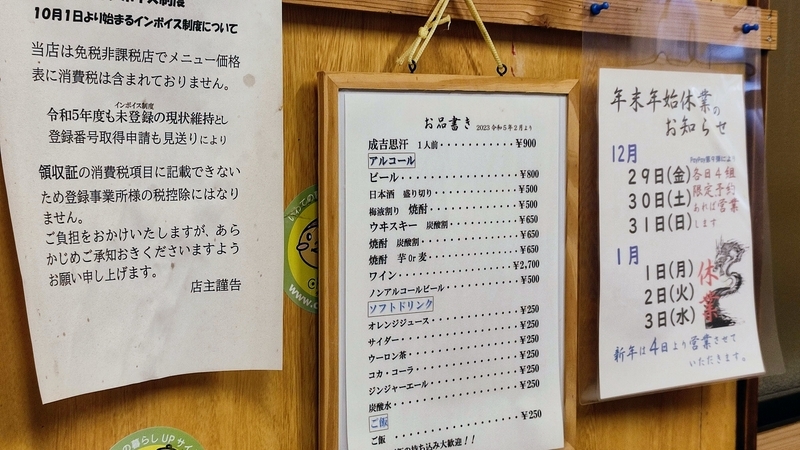 10月1日より始まるインボイス制度について
当店は免税非課税店でメニュー価格
表に消費税は含まれておりません。
インボイス制度
令和5年度も未登録の現状維持とし
登録番号取得申請も見送りにより
領収証の消費税項目に記載できない
ため登録事業所様の税控除にはなり
ません。
ご負担をおかけいたしますが、あら
かじめご承知おきくださいますよう
お願い申し上げます。
店主謹告
お品書き 2023令和5年2月より
成吉思汗 1人前・・・・・・・・・・¥900
アルコール
ビール・・・・・・・・・・・・・・¥800
日本酒 盛り切り・・・・・・・・・・¥500
梅液割り 焼酎・・・・・・・・・・・¥500
ウヰスキー 炭酸割・・・・・・・・・¥650
焼酎 炭酸割・・・・・・・・・・・・¥650
焼酎 芋or麦・・・・・・・・・・・・¥650
ワイン・・・・・・・・・・・・・・¥2,700
ノンアルコールビール・・・・・・・・¥500
ソフトドリンク
オレンジジュース・・・・・・・・・・¥250
サイダー・・・・・・・・・・・・・¥250
ウーロン茶・・・・・・・・・・・・¥250
コカ・コーラ・・・・・・・・・・・¥250
ジンジャーエール・・・・・・・・・・¥250
炭酸水・・・・・・・・・・・・・・¥250
ご飯
ご飯・・・・・・・・・・・・・・・¥250
の持ち込み大歓迎!!
年末年始休業の
お知らせ
12月
29日(金)
30日(土)
31日(日)
各日4組
限定予約
あれば営業
します
1月
1日(月)
2日(火)
3日(水)
休業
新年は4日より営業させて
いただきます。
の暮らしUPサ